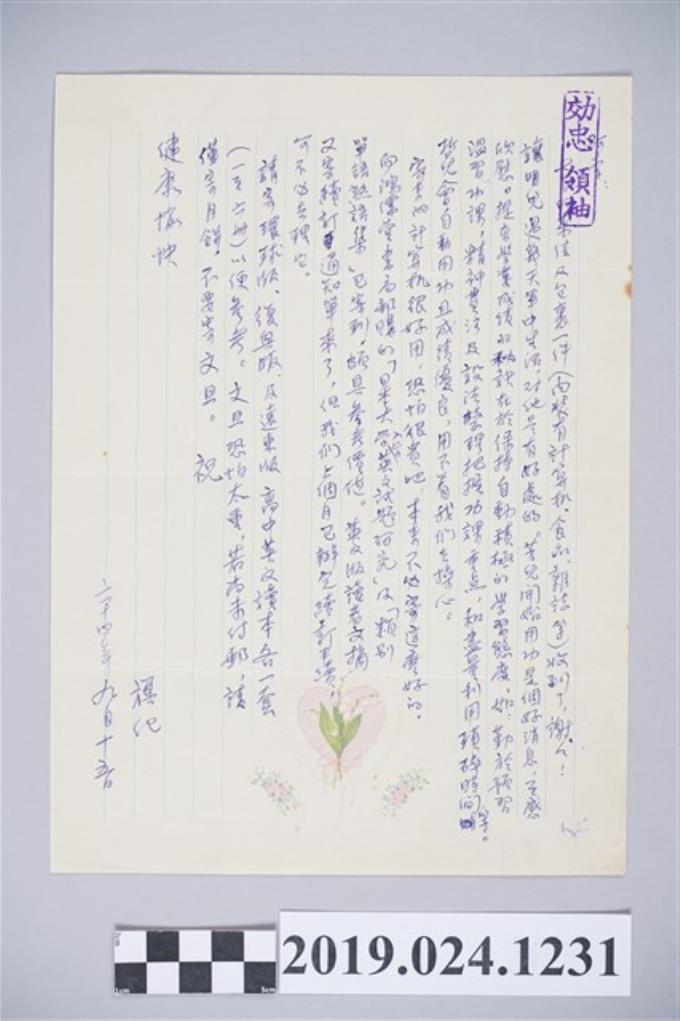 効忠領袖
來信及包裹一件(內裝有計算机、食品、雜誌等)收到了,謝々!
讓明兒過幾天軍中生活,對他是有好處的。芳兒開始用功是個好消息,至感
欣慰。提高學業成績的秘訣在於保持自動積極的學習態度,如:勤於預習
溫習功課,精神貫注及設法整理把握功課重点,和盡量利用瑣碎時間等。
哲兒會自動用功且成績優良,用不着我們去操心。
寄來的計算机很好用,恐怕很貴吧,本來不必寄這麼好的。
向鴻儒堂書局郵購的「日本大學入試英文試題研究」及「類別
單語熟語集」已寄到,頗具參考價值。英文版讀者文摘
又寄續訂通知單來了,但我們上個月已辦完續訂手續,
可不必去理它。
請寄環球版、復興版、及遠東版高中英文讀本各一套
(一至六冊)以便參考。文旦恐怕太重,若尚未付郵,請
僅寄月餅,不要寄文旦。 祝
健康愉快
旗化
六十四年九月十五日
2019.024.1231